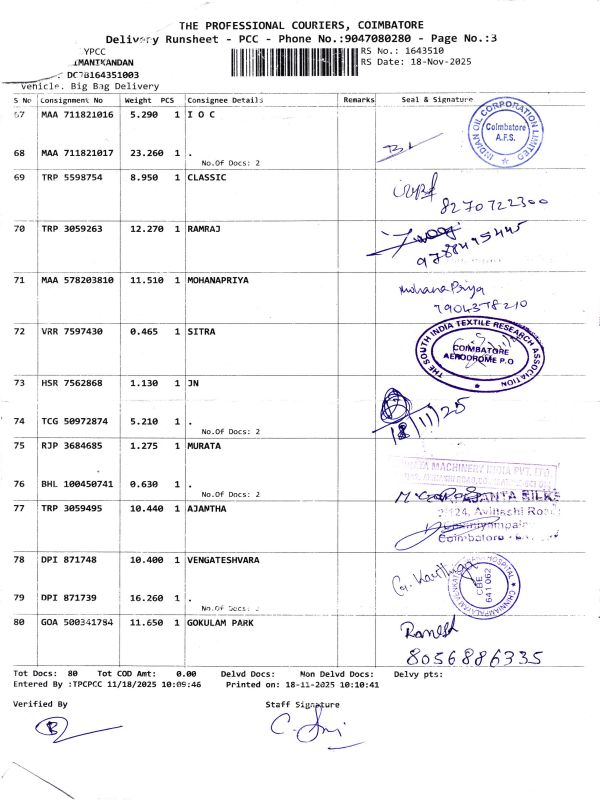 THE PROFESSIONAL COURIERS, COIMBATORE
Delivery Runsheet - PCC - Phone No.:9047080280 - Page No.:3
YPCC
RS No.: 1643510
IMANIKANDAN
RS Date: 18-Nov-2025
DC7B164351003
vehicle. Big Bag Delivery
S No Consignment No Weight PCS Consignee Details Remarks Seal & Signature
67 MAA 711821016 5.290 1 I O C
INDIAN OIL CORPORATION LIMITED
Coimbatore
A.F.S.
68 MAA 711821017 23.260 1 .
No.Of Docs: 2
69 TRP 5598754 8.950 1 CLASSIC
8270722300
70 TRP 3059263 12.270 1 RAMRAJ
9788495445
71 MAA 578203810 11.510 1 MOHANAPRIYA
Mohana Priya
7904378210
72 VRR 7597430 0.465 1 SITRA
THE SOUTH INDIA TEXTILE RESEARCH ASSOCIATION
COIMBATORE
AERODROME P.O
73 HSR 7562868 1.130 1 JN
74 TCG 50972874 5.210 1 .
No.Of Docs: 2
18/11/25
75 RJP 3684685 1.275 1 MURATA
MURATA MACHINERY INDIA PVT. LTD.
76 BHL 100450741 0.630 1 .
No.Of Docs: 2
77 TRP 3059495 10.440 1 AJANTHA
AJANTA SILKS
Avinashi Road
Coimbatore
78 DPI 871748 10.400 1 VENGATESHVARA
G. Karthiga
HOSPITAL
CHINNIAMPALAYAM
CBE
641 062
79 DPI 871739 16.260 1 .
No.Of Docs: 2
80 GOA 500341784 11.650 1 GOKULAM PARK
Ramesh
8056886335
Tot Docs: 80 Tot COD Amt: 0.00 Delvd Docs: Non Delvd Docs: Delvy pts:
Entered By :TPCPCC 11/18/2025 10:09:46 Printed on: 18-11-2025 10:10:41
Verified By Staff Signature